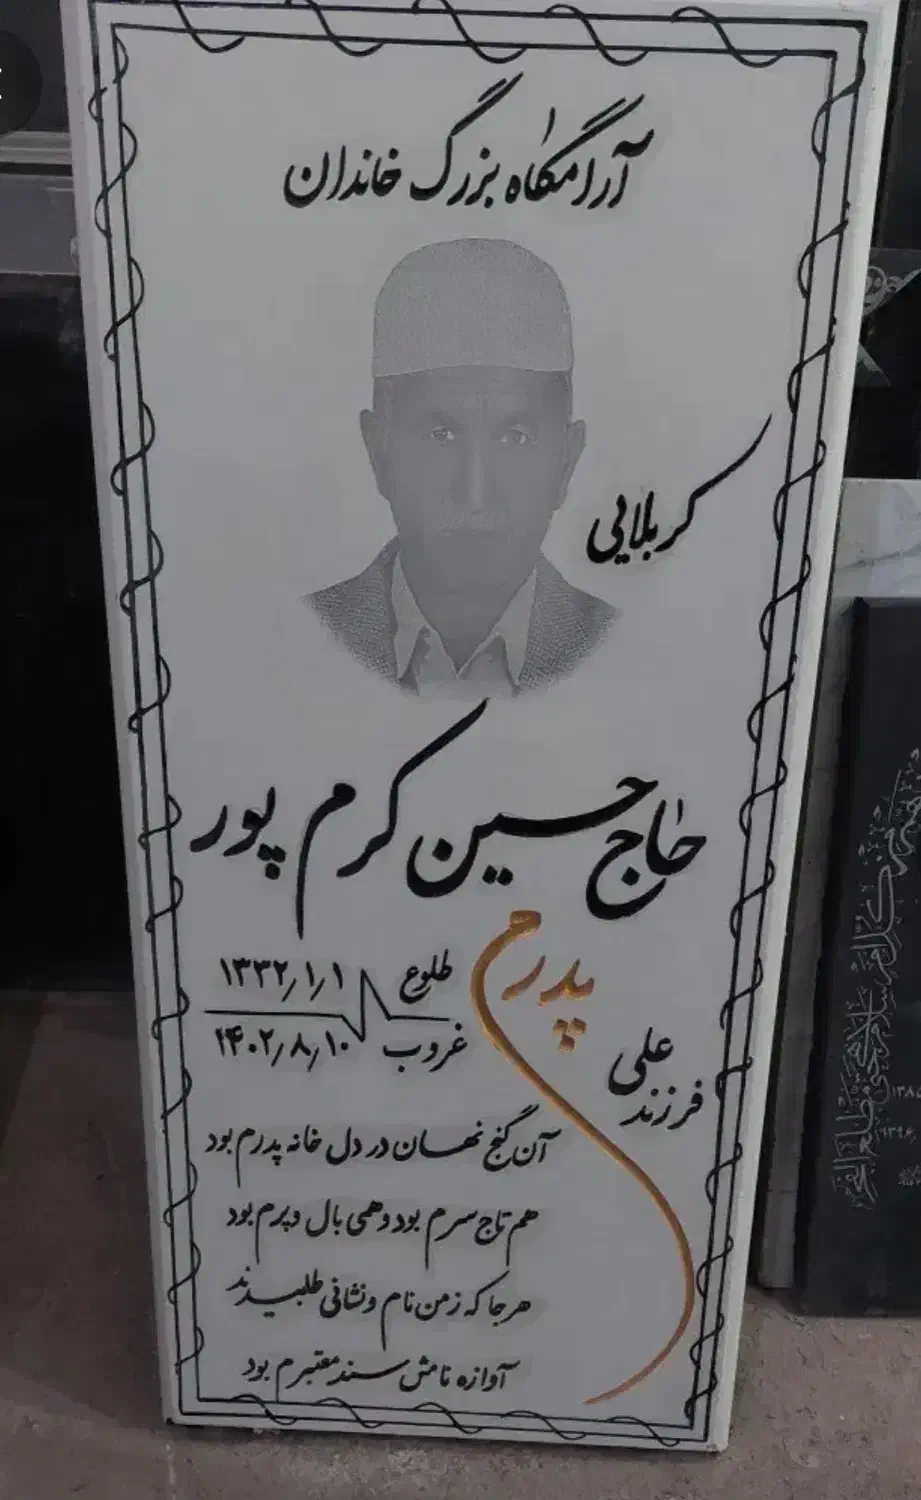 آرامگاه بزرگ خاندان
کربلایی
حاج حسین کرم پور
پدرم
طلوع ۱۳۳۲/۱/۱
غروب ۱۴۰۲/۸/۱۰
فرزند علی
آن گنج نهان در دل خانه پدرم بود
هم تاج سرم بود و همی بال و پرم بود
هر جا که ز من نام و نشانی طلبیدند
آوازه نامش سند معتبرم بود